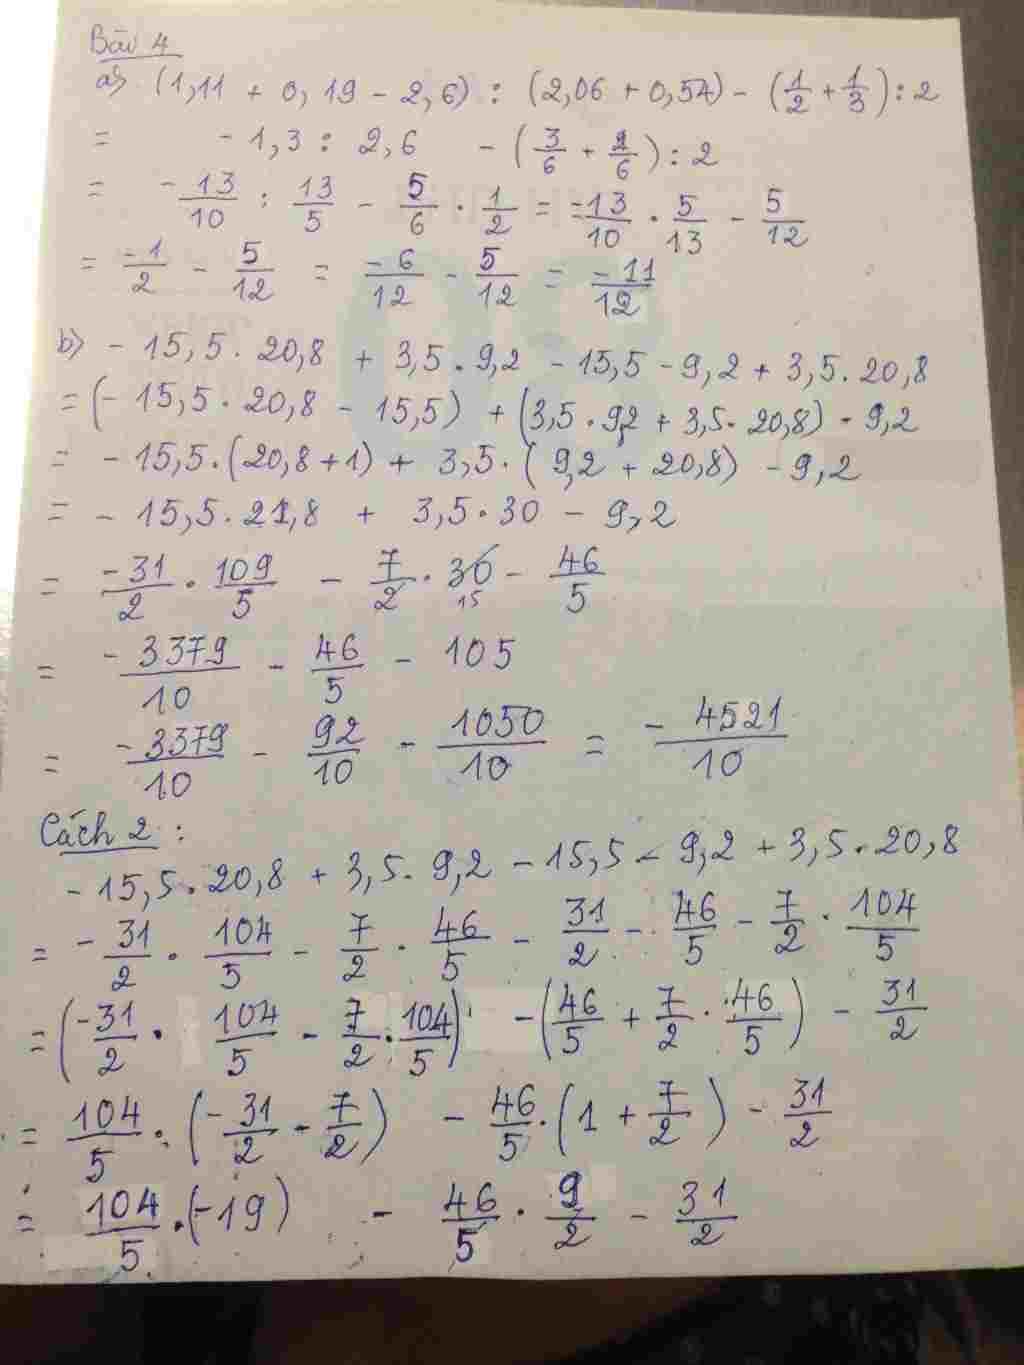 Bài 4
a) (1,11 + 0,19 - 2,6) : (2,06 + 0,54) - (1/2 + 1/3) : 2
= -1,3 : 2,6 - (3/6 + 2/6) : 2
= -13/10 : 13/5 - 5/6 . 1/2 = -13/10 . 5/13 - 5/12
= -1/2 - 5/12 = -6/12 - 5/12 = -11/12
b) - 15,5 . 20,8 + 3,5 . 9,2 - 15,5 - 9,2 + 3,5 . 20,8
= (- 15,5 . 20,8 - 15,5) + (3,5 . 9,2 + 3,5 . 20,8) - 9,2
= - 15,5 . (20,8 + 1) + 3,5 . (9,2 + 20,8) - 9,2
= - 15,5 . 21,8 + 3,5 . 30 - 9,2
= -31/2 . 109/5 - 7/2 . 30 15 - 46/5
= -3379/10 - 46/5 - 105
= -3379/10 - 92/10 - 1050/10 = -4521/10
Cách 2 :
- 15,5 . 20,8 + 3,5 . 9,2 - 15,5 - 9,2 + 3,5 . 20,8
= -31/2 . 104/5 - 7/2 . 46/5 - 31/2 - 46/5 - 7/2 . 104/5
= (-31/2 . 104/5 - 7/2 . 104/5) - (46/5 + 7/2 . 46/5) - 31/2
= 104/5 . (-31/2 - 7/2) - 46/5 . (1 + 7/2) - 31/2
= 104/5 . (-19) - 46/5 . 9/2 - 31/2